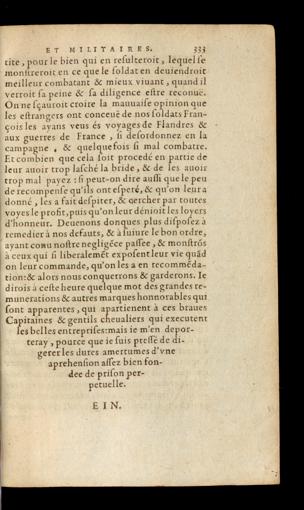 ET MILITAIRES. 333
tite, pour le bien qui en resulteroit, lequel se
monstreroit en ce que le soldat en deuiendroit
meilleur combatant & mieux viuant, quand il
verroit sa peine & sa diligence estre reconuë.
On ne sçauroit croire la mauuaise opinion que
les estrangers ont conceuë de nos soldats Fran-
çois les ayans veus és voyages de Flandres &
aux guerres de France, si desordonnez en la
campagne, & quelquefois si mal combatre.
Et combien que cela soit procedé en partie de
leur auoir trop lasché la bride, & de les auoir
trop mal payez: si peut-on dire aussi que le peu
de recompense qu'ils ont esperé, & qu'on leur a
donné, les a fait despiter, & cercher par toutes
voyes le profit, puis qu'on leur dénioit les loyers
d'honneur. Deuenons donques plus disposez à
remedier à nos defauts, & à suiure le bon ordre,
ayant conu nostre negligẽce passee, & monstrõs
à ceux qui si liberalemẽt exposent leur vie quãd
on leur commande, qu'on les a en recommẽda-
tion: & alors nous conquerrons & garderons. Ie
dirois à ceste heure quelque mot des grandes re-
munerations & autres marques honnorables qui
sont apparentes, qui apartienent à ces braues
Capitaines & gentils cheualiers qui executent
les belles entreprises: mais ie m'en depor-
teray, pource que ie suis pressé de di-
gerer les dures amertumes d'vne
aprehension assez bien fon-
dee de prison per-
petuelle.
FIN.